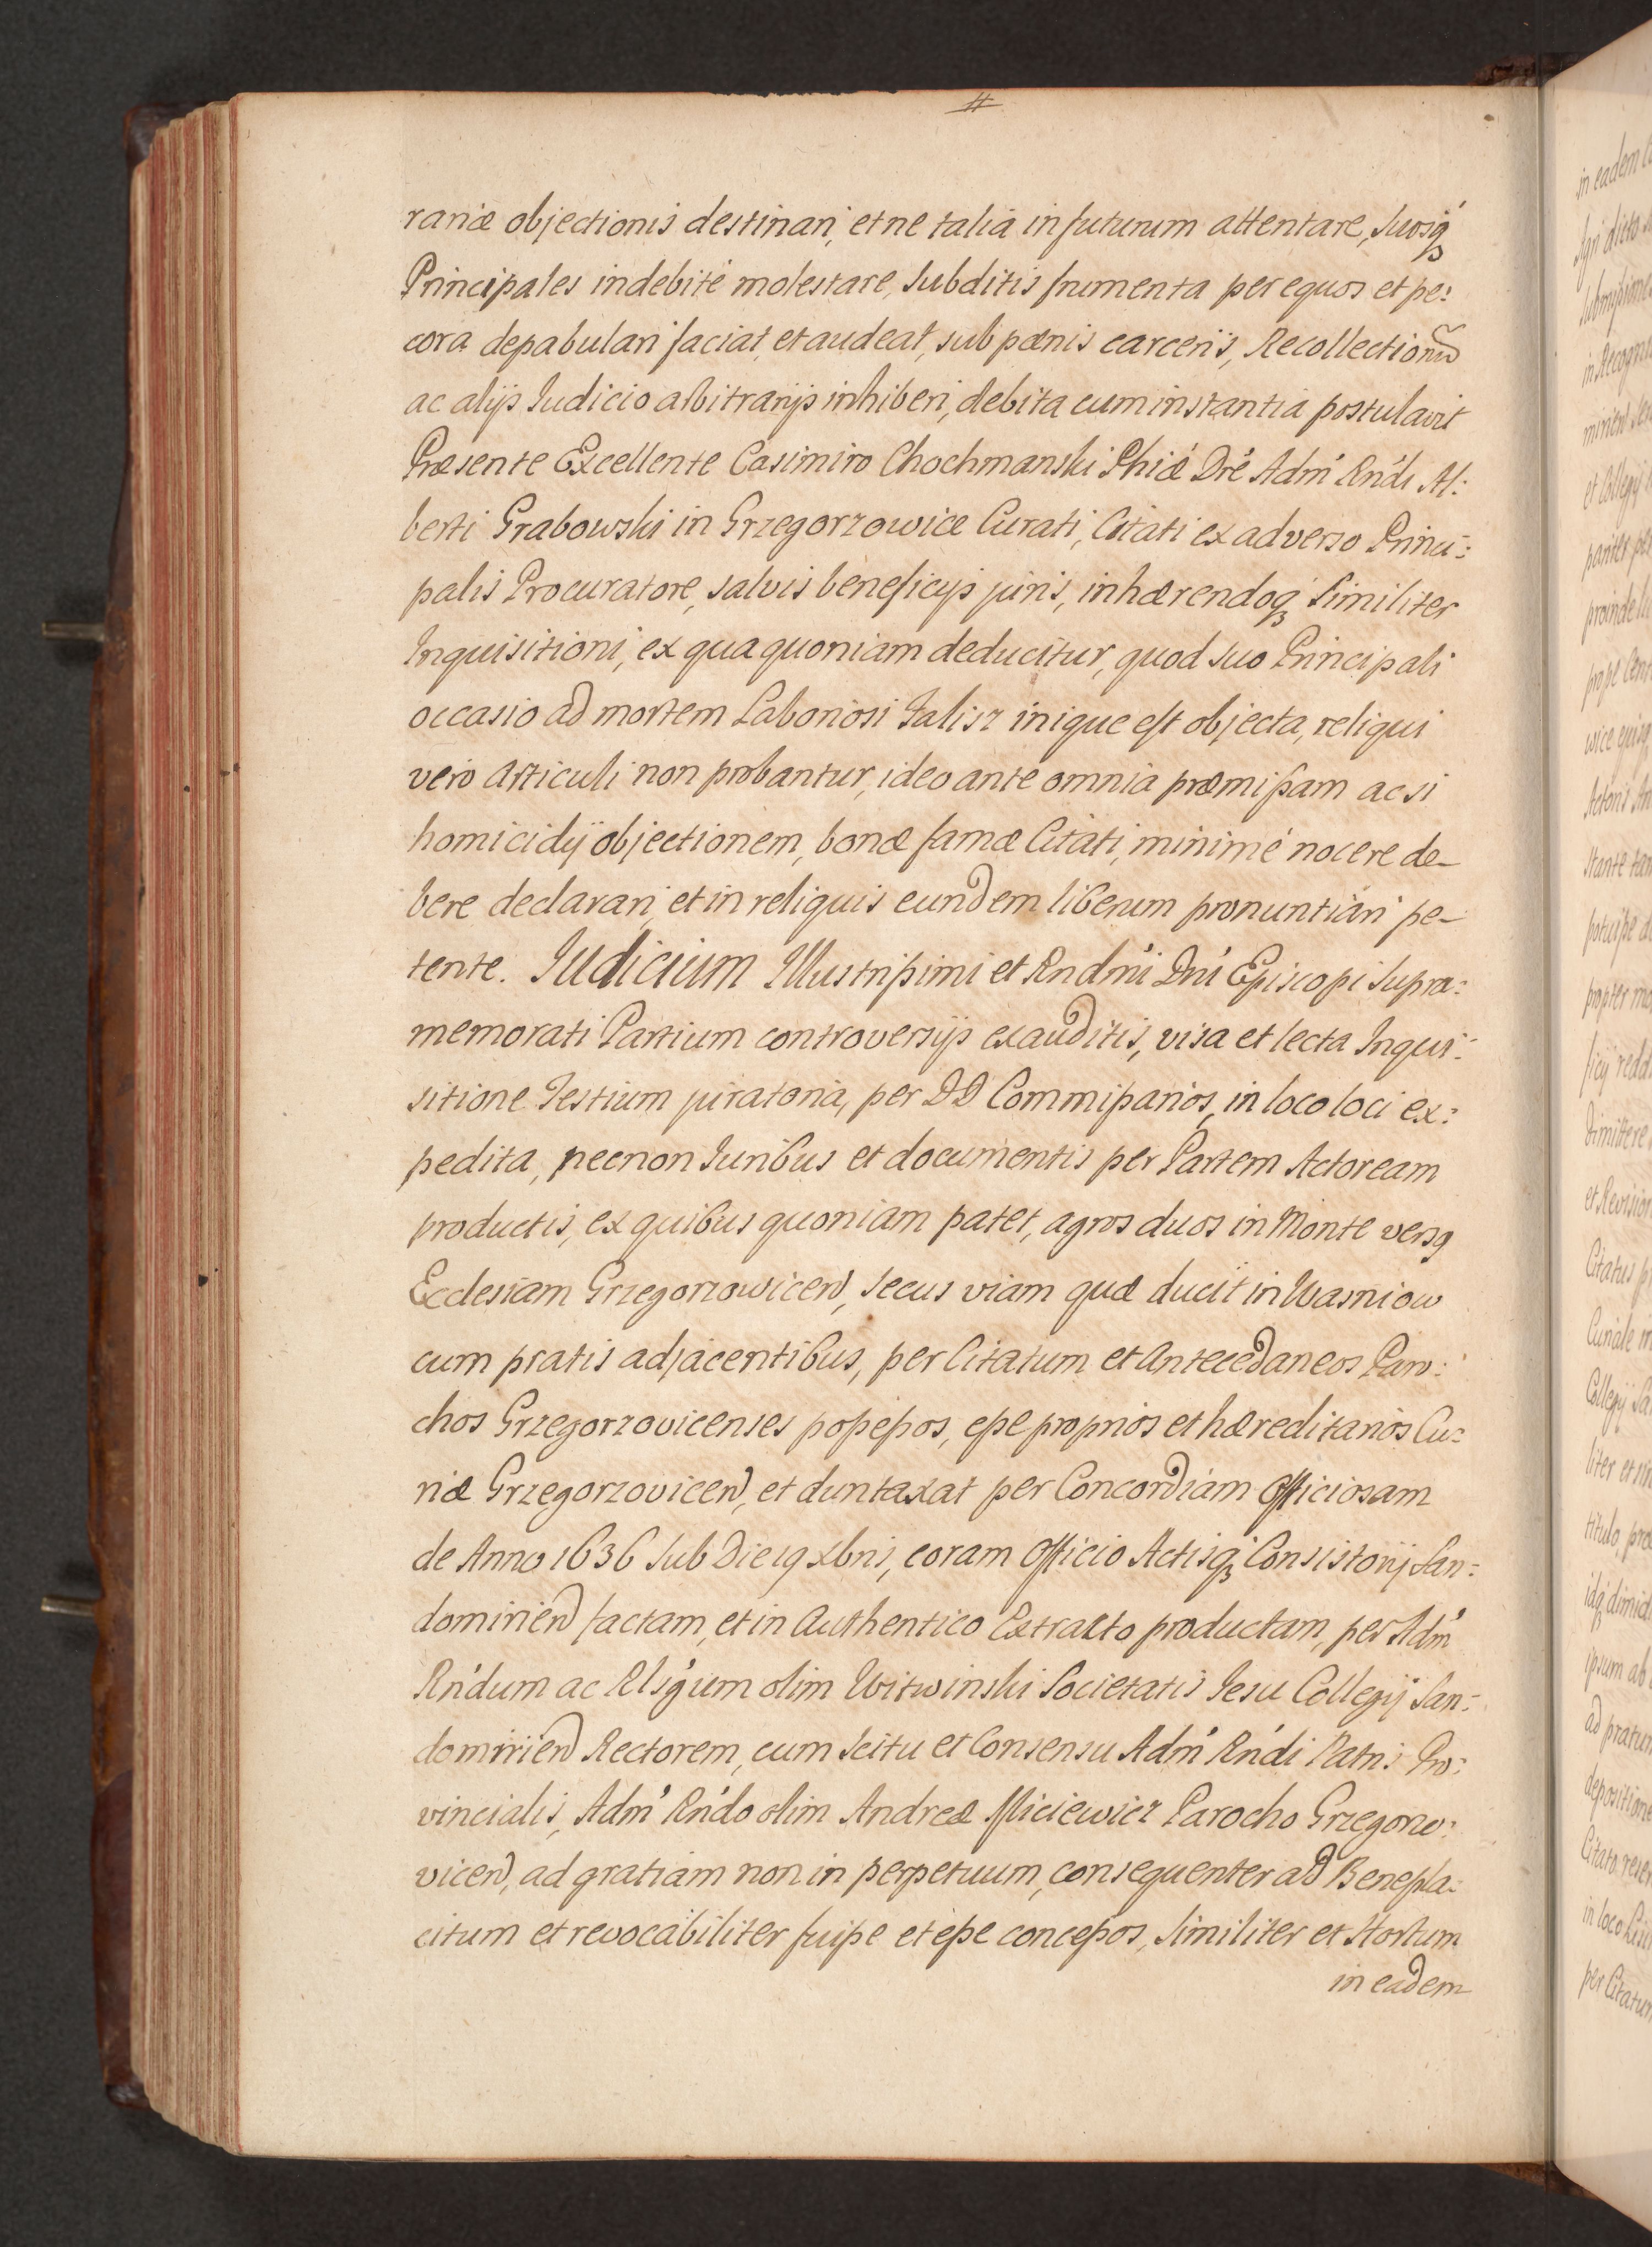 #
rariæ objectionis destinari, et ne talia in futurum attentare, Suosq́ꝫ
Principales indebité molestare, Subditis frumenta per equos et pe:
cora depabulari faciat, et audeat, sub pœnis carceris, Recollectionū
ac alijs Iudicio arbitrarijs inhiberi, debita cum instantia postulavit
Præsente Excellente Casimiro Chochmanski Phiæ Dre Adm̃ Rńdi Al:
berti Grabowski in Grzegorzowice Curati, Citati ex adverso Princi:
palis Procuratore, salvis beneficijs juris, inhærendoqꝫ Similiter
Inquisitioni, ex qua quoniam deducitur, quod suo Principali
occasio ad mortem Laboriosi Galisz inique est objecta, reliqui
vero articuli non probantur, ideo ante omnia præmißam ac si
homicidij objectionem, bonæ famæ Citati, minimé nocere de-
bere declarari, et in reliquis eundem liberum pronuntiari pe-
tente. Iudicium Illustrißimi et Rndmi Dńi Episcopi Supra:
memorati Partium controversijs exauditis, visa et lecta Inqui:
sitione Testium juratoria, per DD Commißarios, in loco loci ex:
pedita, necnon Iuribus et documentis per Partem Actoream
productis, ex quibus quoniam patet, agros duos in Monte versq
Ecclesiam Grzegorzowicen, secus viam quæ ducit in Wasniow
cum pratis adjacentibus, per Citatum et Antecedaneos Paro:
chos Grzegorzovicenses poßeßos, eße proprios et hæreditarios Cu:
riæ Grzegorzovicen, et duntaxat per Concordiam Officiosam
de Anno 1636 Sub Die 19 xbris, coram Officio Actisqꝫ Consistorij San:
domirien factam, et in Authentico Extracto productam, per Adm̃
Rńdum ac Rlsǵum olim Witwinski Societatis Iesu Collegij San:
domirien Rectorem, cum Scitu et Consensu Adm̃ Rńdi Patris Pro:
vincialis, Adm̃ Rńdo olim Andreæ Miciewicz Parocho Grzegorzo:
vicen, ad gratiam non in perpetuum, consequenter ad Benepla:
citum et revocabiliter fuiße et eße conceßos, Similiter et Hortum
in eadem